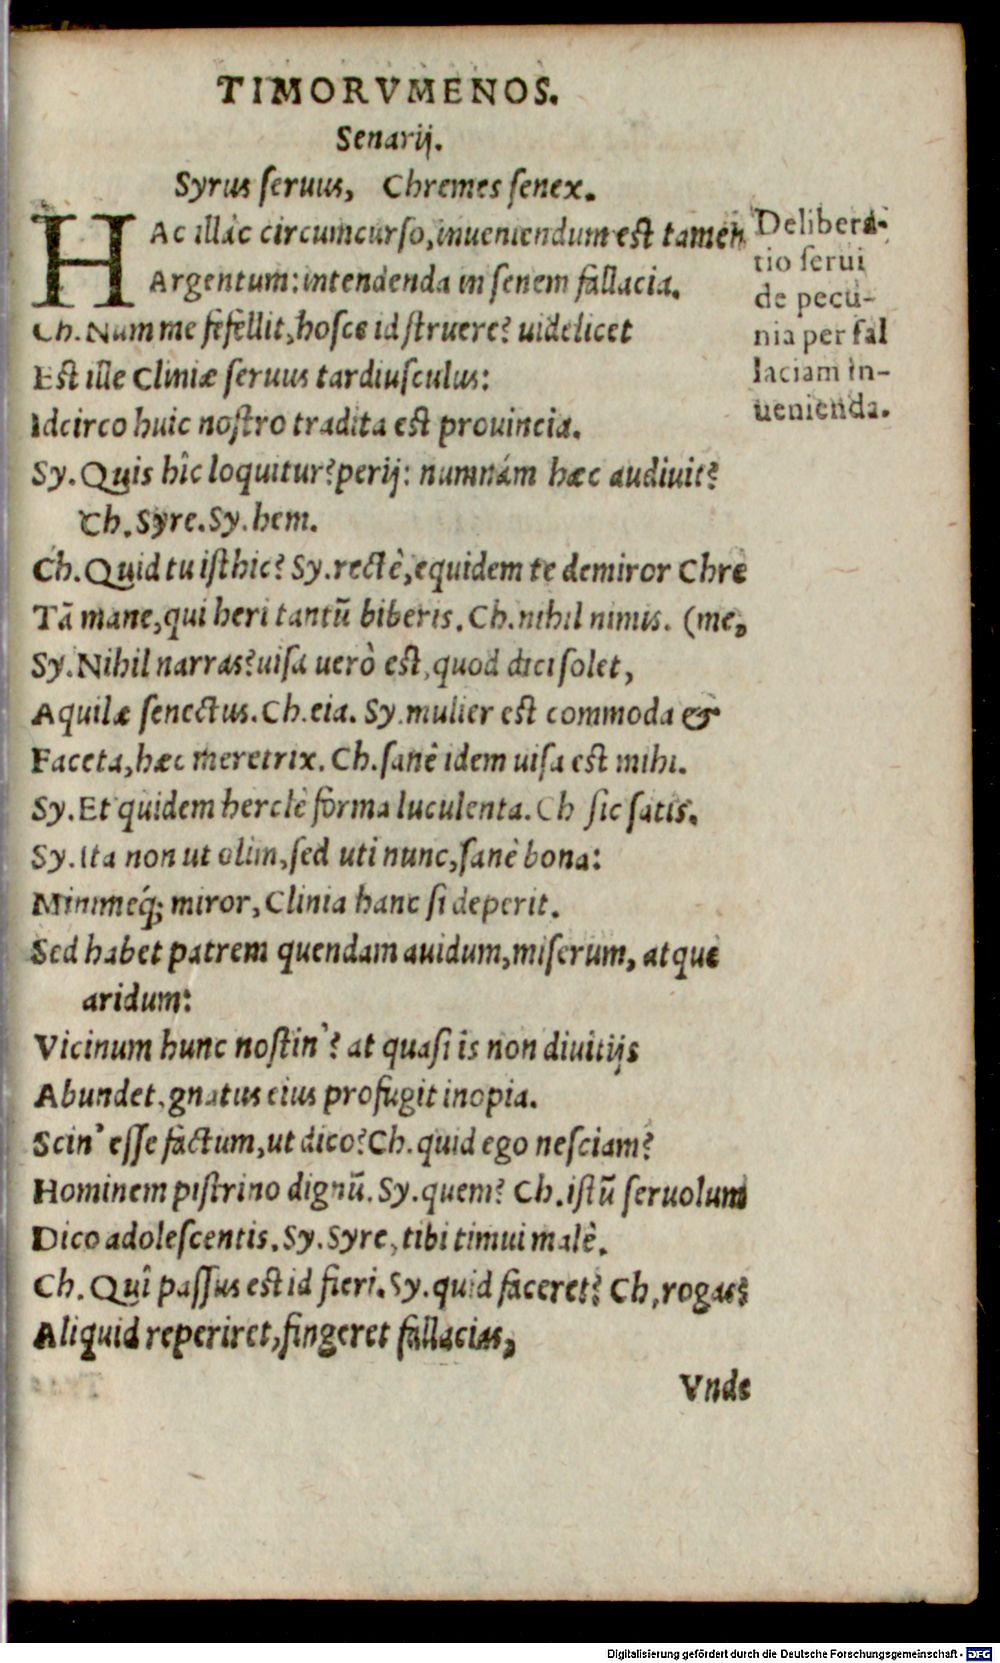 TIMORVMENOS.
Senarij.
Syrus seruus, Chremes senex.
HAc illàc circumcurso, inueniendum est tamen
Argentum: intendenda in senem fallacia.
Ch. Num me fefellit, hosce id struere? uidelicet
Est ille Cliniæ seruus tardiusculus:
Idcirco huic nostro tradita est prouincia.
Sy. Quis hîc loquitur? perij: numnám hæc audiuit?
Ch. Syre. Sy. hem.
Ch. Quid tu isthic? Sy. rectè, equidem te demiror Chre
Tā mane, qui heri tantū biberis. Ch. nihil nimis. (me,
Sy. Nihil narras? uisa uerò est, quod dici solet,
Aquilæ senectus. Ch. eia. Sy. mulier est commoda &
Faceta, hæc meretrix. Ch. sanè idem uisa est mihi.
Sy. Et quidem herclè forma luculenta. Ch sic satis.
Sy. Ita non ut olim, sed uti nunc, sanè bona:
Minimeq́; miror, Clinia hanc si deperit.
Sed habet patrem quendam auidum, miserum, atque
aridum:
Vicinum hunc nostin'? at quasi is non diuitijs
Abundet, gnatus eius profugit inopia.
Scin' esse factum, ut dico? Ch. quid ego nesciam?
Hominem pistrino dignū. Sy. quem? Ch. istū seruolum
Dico adolescentis. Sy. Syre, tibi timui malè.
Ch. Quî passus est id fieri. Sy. quid faceret? Ch, rogas?
Aliquid reperiret, fingeret fallacias,
Vnde
Delibera-
tio serui
de pecu-
nia per fal
laciam in-
uenienda.
Digitalisierung gefördert durch die Deutsche Forschungsgemeinschaft - DFG